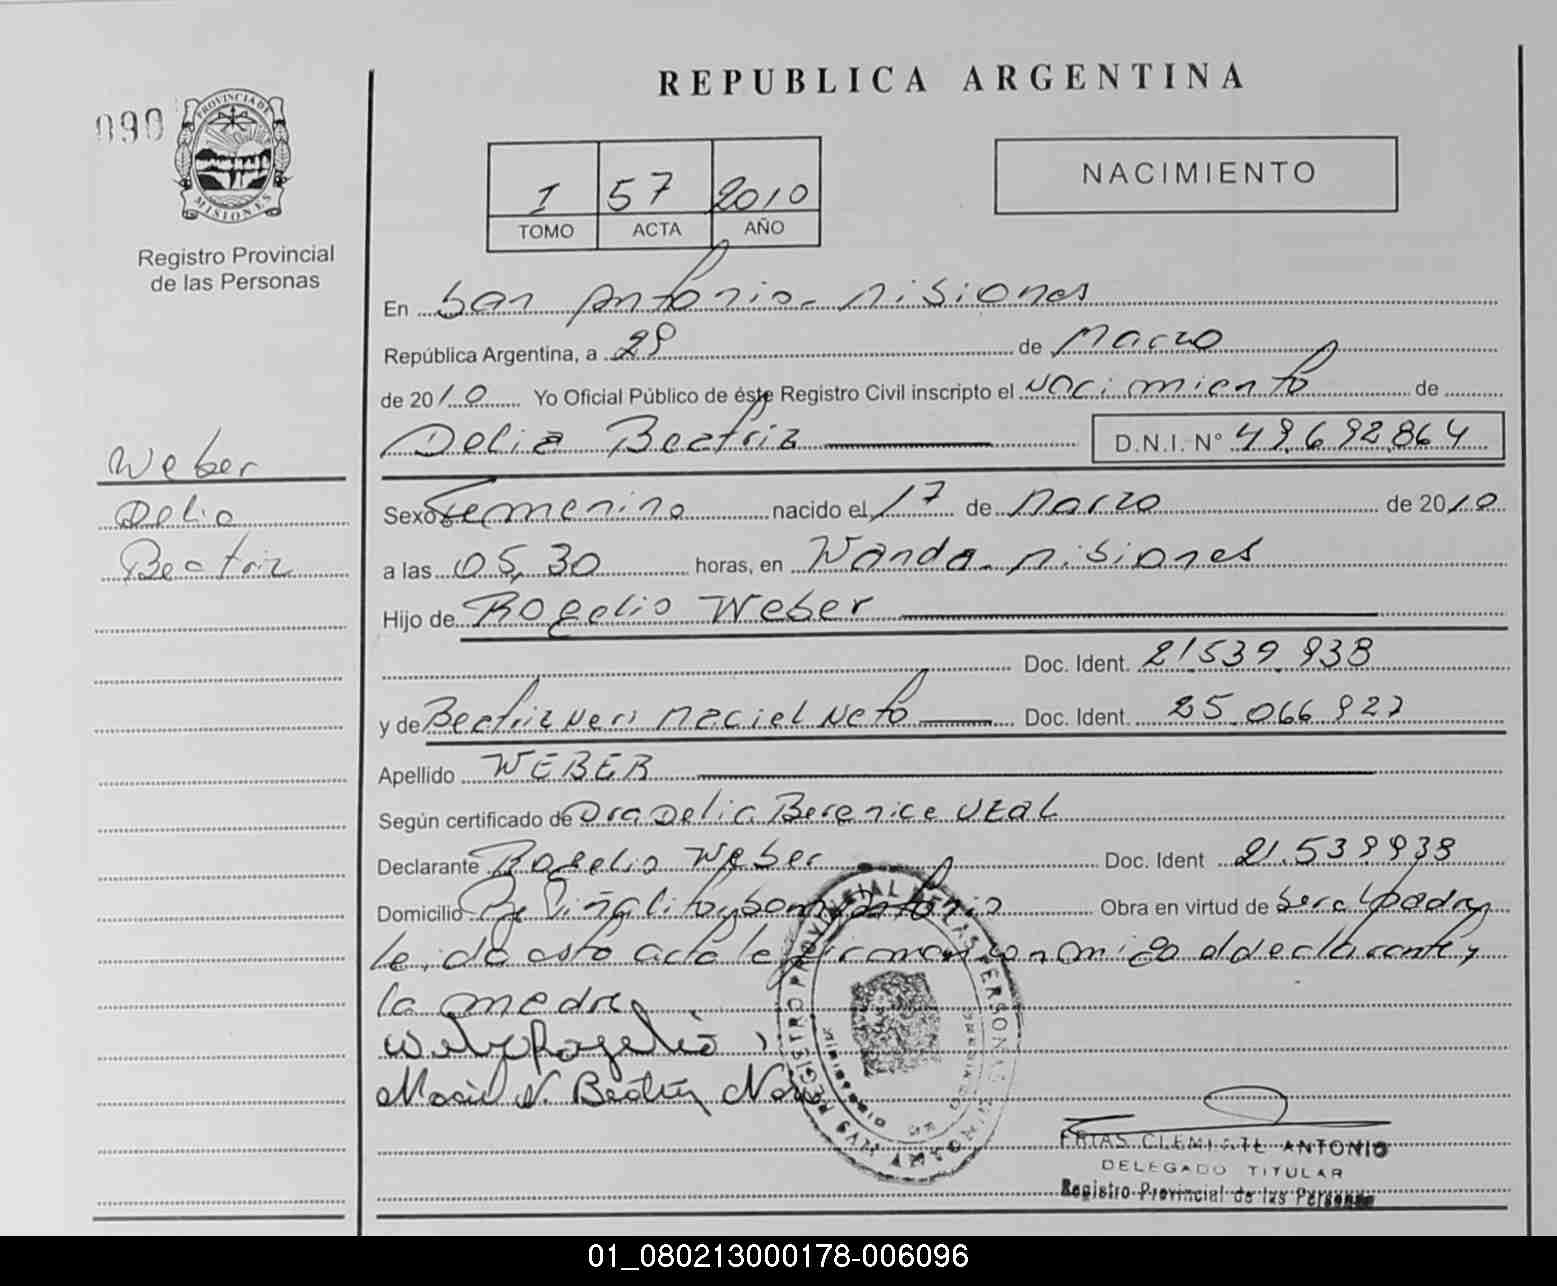 REPUBLICA ARGENTINA
090
PROVINCIA DE
MISIONES
Registro Provincial
de las Personas
I 57 2010
TOMO ACTA AÑO
NACIMIENTO
En San Antonio - Misiones
República Argentina, a 29 de Marzo
de 2010 Yo Oficial Público de éste Registro Civil inscripto el nacimiento de
Delia Beatriz D.N.I. N° 49.692.864
Weber
Delia
Beatriz
Sexo Femenino nacido el 17 de Marzo de 2010
a las 05,30 horas, en Wanda - Misiones
Hijo de Rogelio Weber
Doc. Ident. 21.539.938
y de Beatriz Neri Maciel Neto Doc. Ident. 25.066.927
Apellido WEBER
Según certificado de Dra Delia Berenice
Declarante Rogelio Weber Doc. Ident 21.539.938
Domicilio Piñalito y San Antonio Obra en virtud de ser el padre
leida esta acta le firman conmigo el declarante y
la madre
Weber Rogelio
Maciel N. Beatriz
REGISTRO PROVINCIAL DE LAS PERSONAS
FRIAS CLEMENTE ANTONIO
DELEGADO TITULAR
Registro Provincial de las Personas
01_080213000178-006096